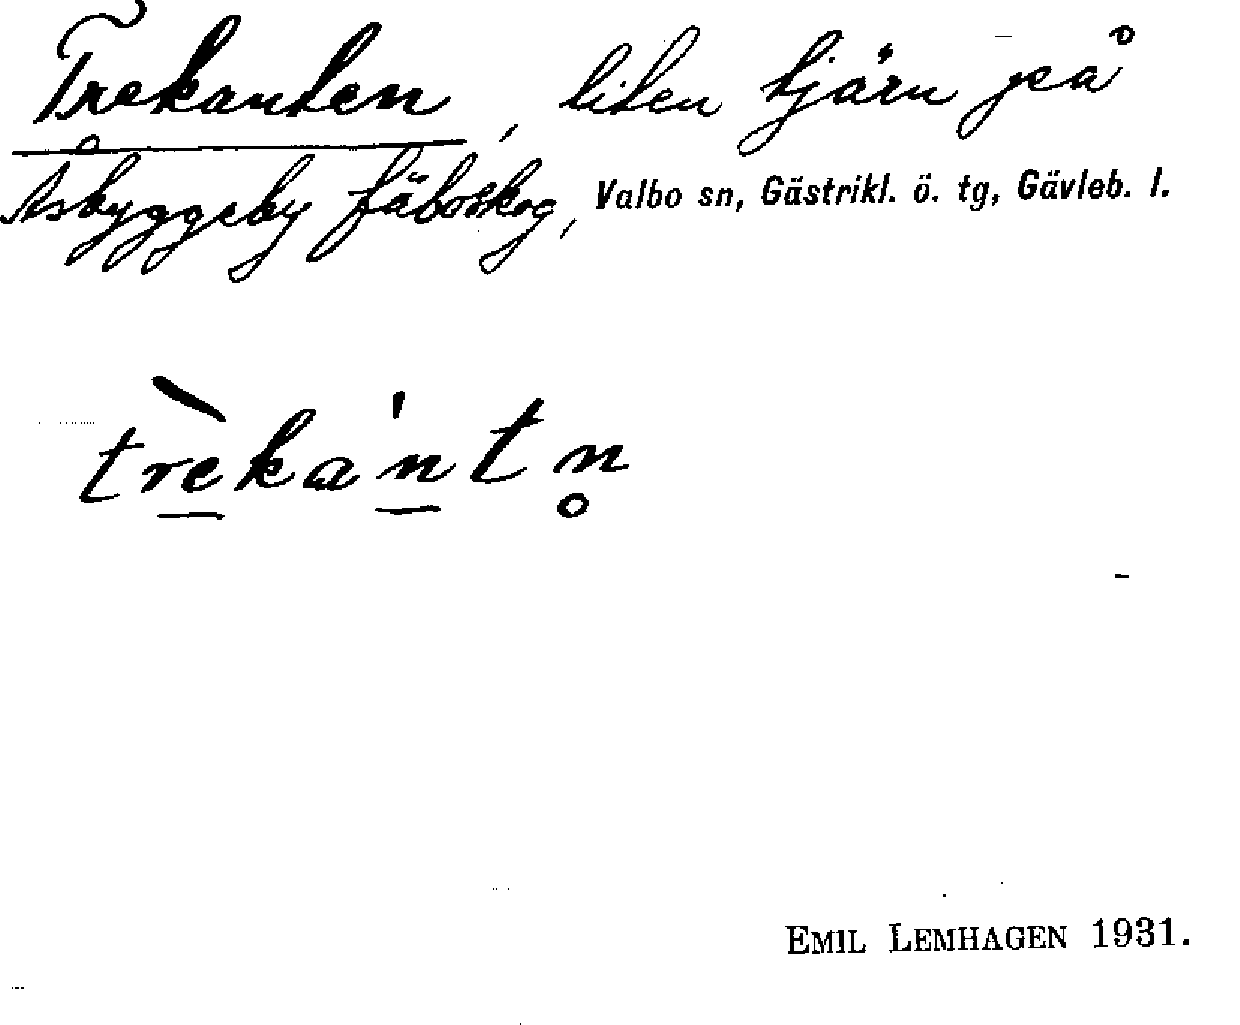 Trekanten, liten tjärn på
Åsbyggeby fäboskog, Valbo sn, Gästrikl. ö. tg, Gävleb. l.
trèka'ntn̥
EMIL LEMHAGEN 1931.